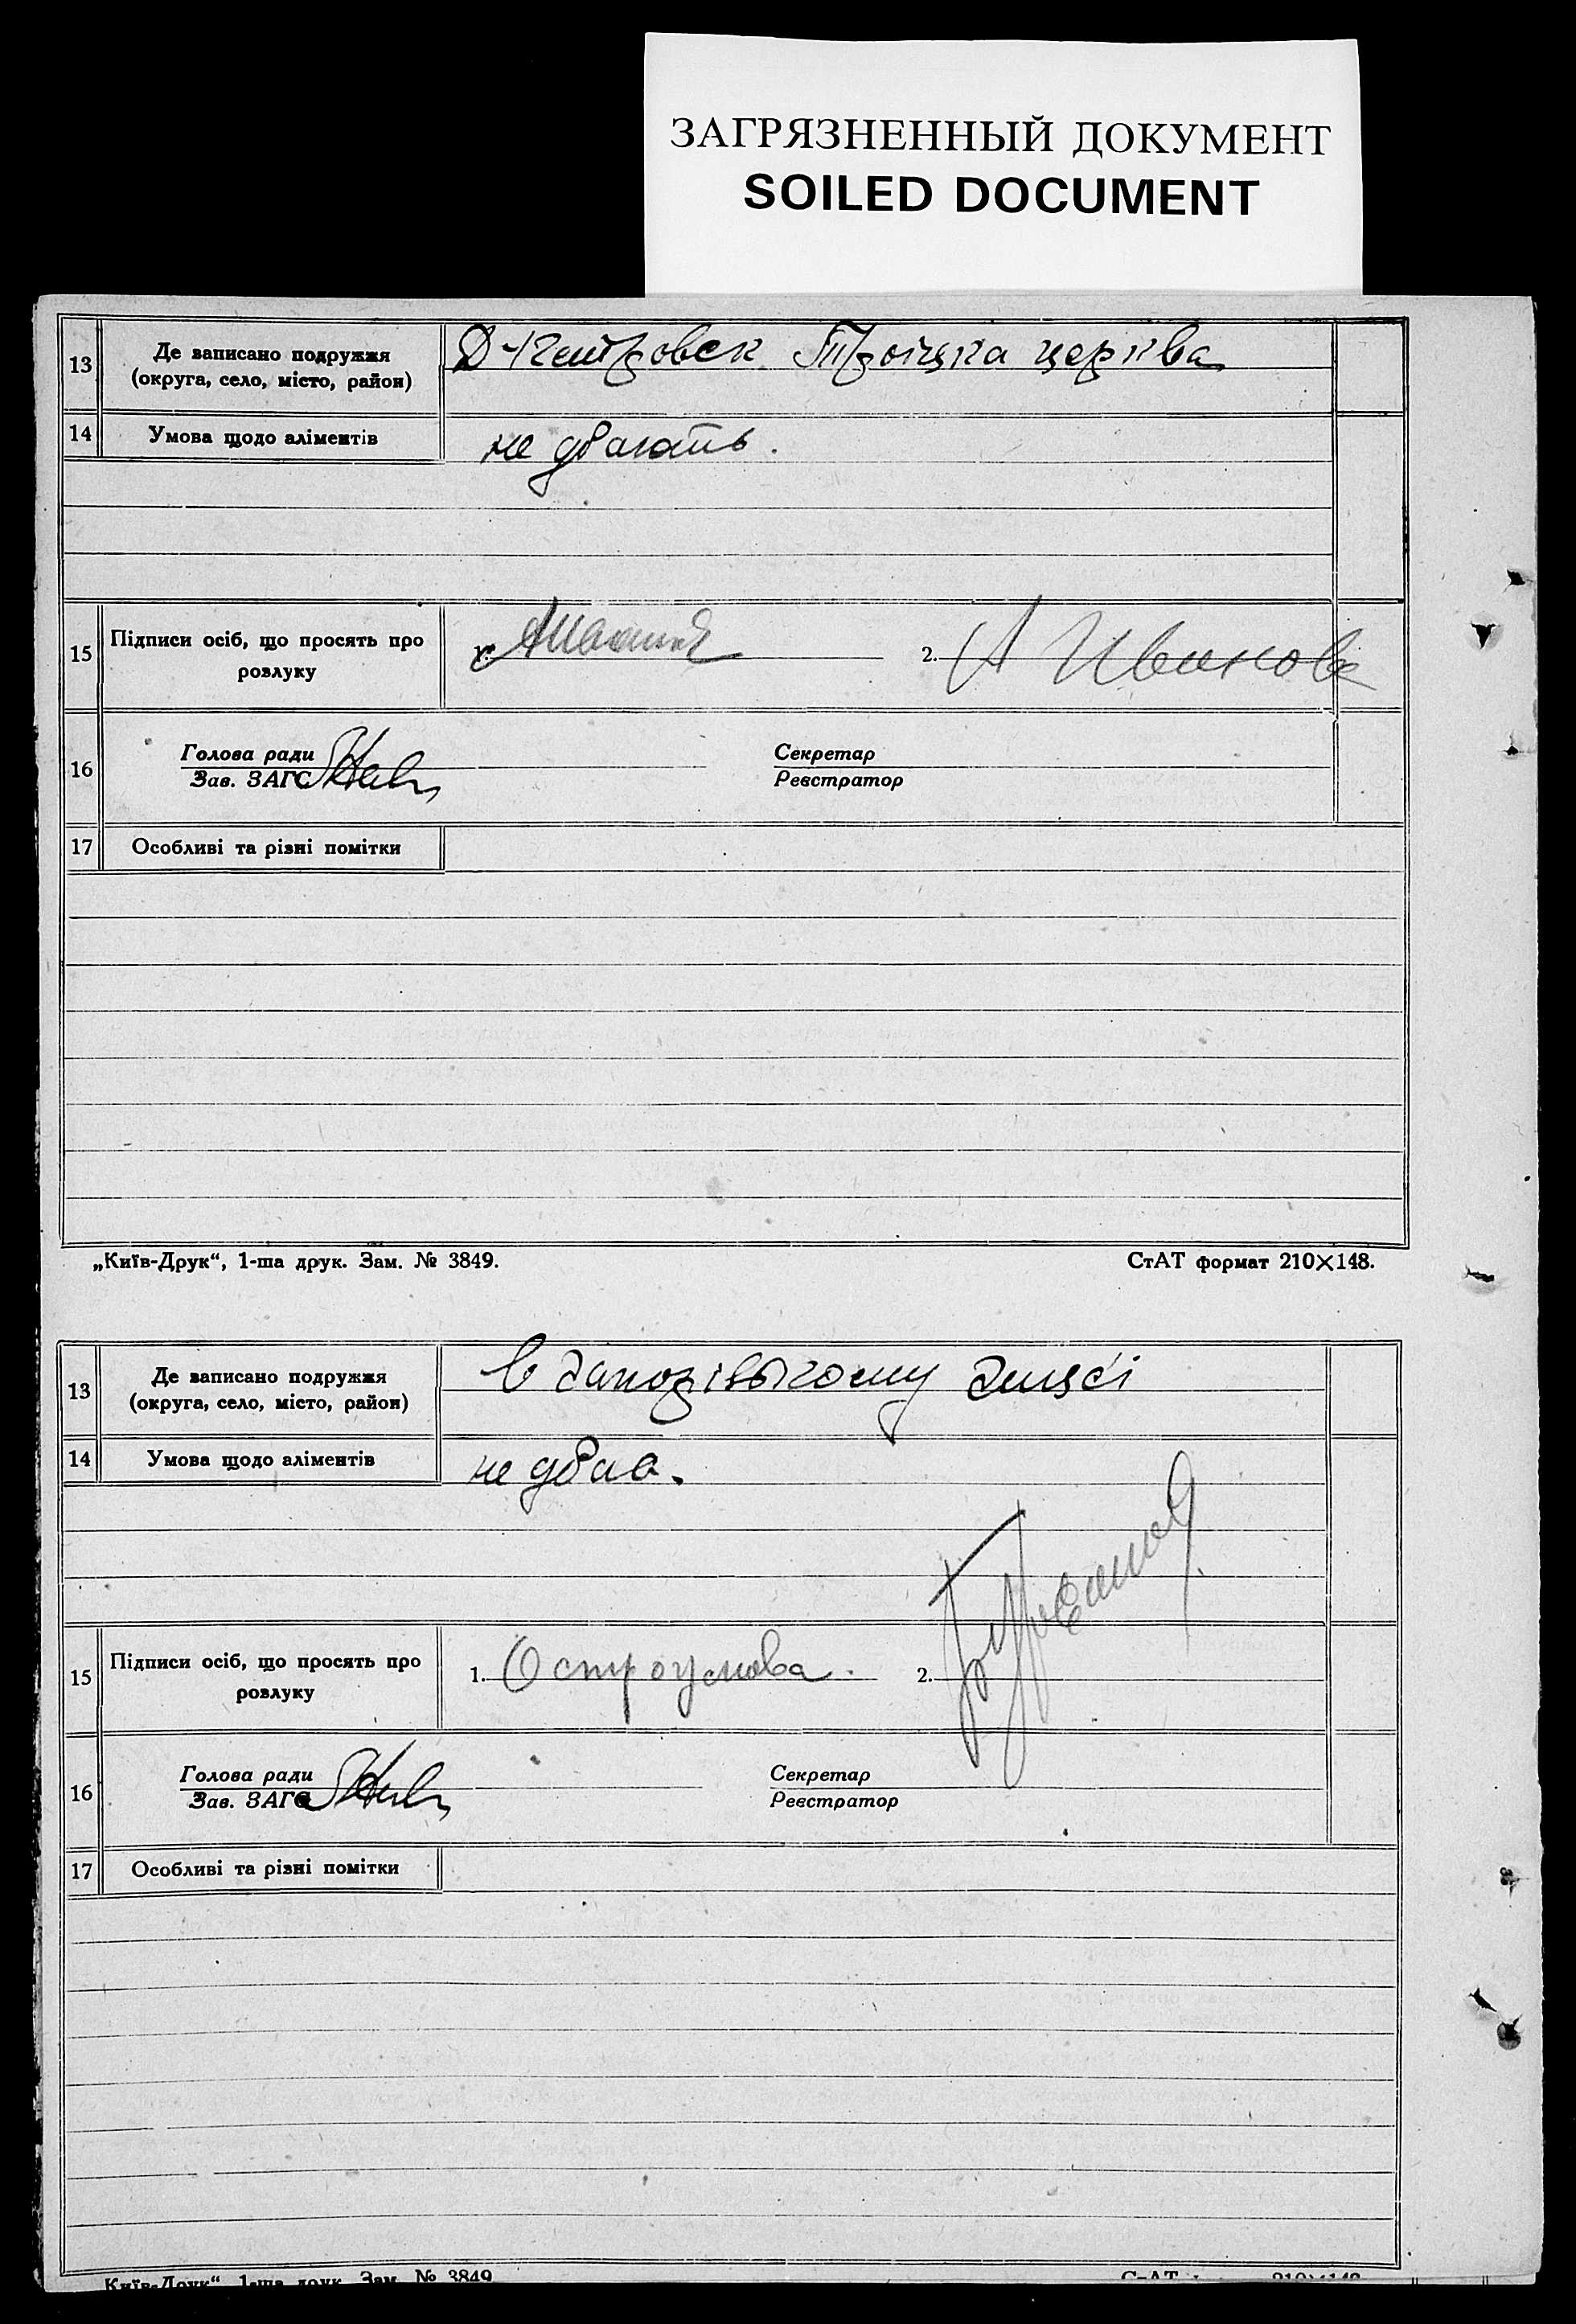 ЗАГРЯЗНЕННЫЙ ДОКУМЕНТ
SOILED DOCUMENT
13
Де записано подружжя
(округа, село, місто, район)
Д-Петровск Троіцка церква
14
Умова щодо аліментів
не дбають.
15
Підписи осіб, що просять про
розлуку
2. А Иванова
16
Голова ради
Зав. ЗАГС
Секретар
Реєстратор
17
Особливі та різні помітки
„Київ-Друк“, 1-ша друк. Зам. № 3849.
СтАТ формат 210×148.
13
Де записано подружжя
(округа, село, місто, район)
В
14
Умова щодо аліментів
не дбав.
15
Підписи осіб, що просять про
розлуку
1. Остроумова.
2.
16
Голова ради
Зав. ЗАГС
Секретар
Реєстратор
17
Особливі та різні помітки
„Київ-Друк“, 1-ша друк. Зам. № 3849